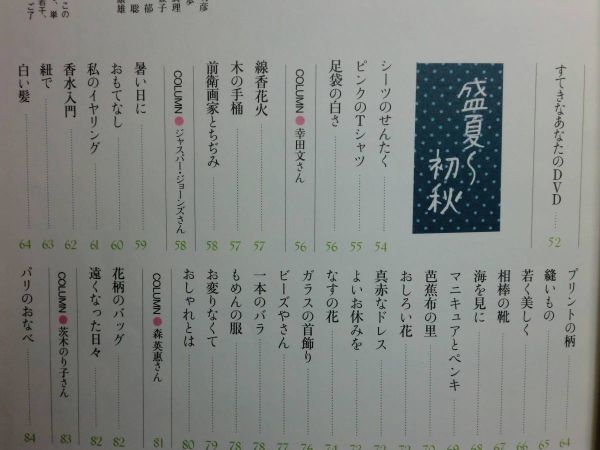 すてきなあなたのDVD……52
盛夏〜
初秋
シーツのせんたく……54
ピンクのTシャツ……55
足袋の白さ……56
COLUMN ● 幸田文さん……56
線香花火……57
木の手桶……57
前衛画家とちぢみ……58
COLUMN ● ジャスパー・ジョーンズさん……58
暑い日に……59
おもてなし……60
私のイヤリング……61
香水入門……62
紐で……63
白い髪……64
プリントの柄……64
縫いもの……65
若く美しく……66
相棒の靴……67
海を見に……68
マニキュアとペンキ……69
芭蕉布の里……70
おしろい花……
真赤なドレス……72
よいお休みを……
なすの花……
ガラスの首飾り……76
ビーズやさん……77
一本のバラ……78
もめんの服……78
お変りなくて……79
おしゃれとは……80
COLUMN ● 森英惠さん……81
花柄のバッグ……82
遠くなった日々……82
COLUMN ● 茨木のり子さん……83
パリのおなべ……84